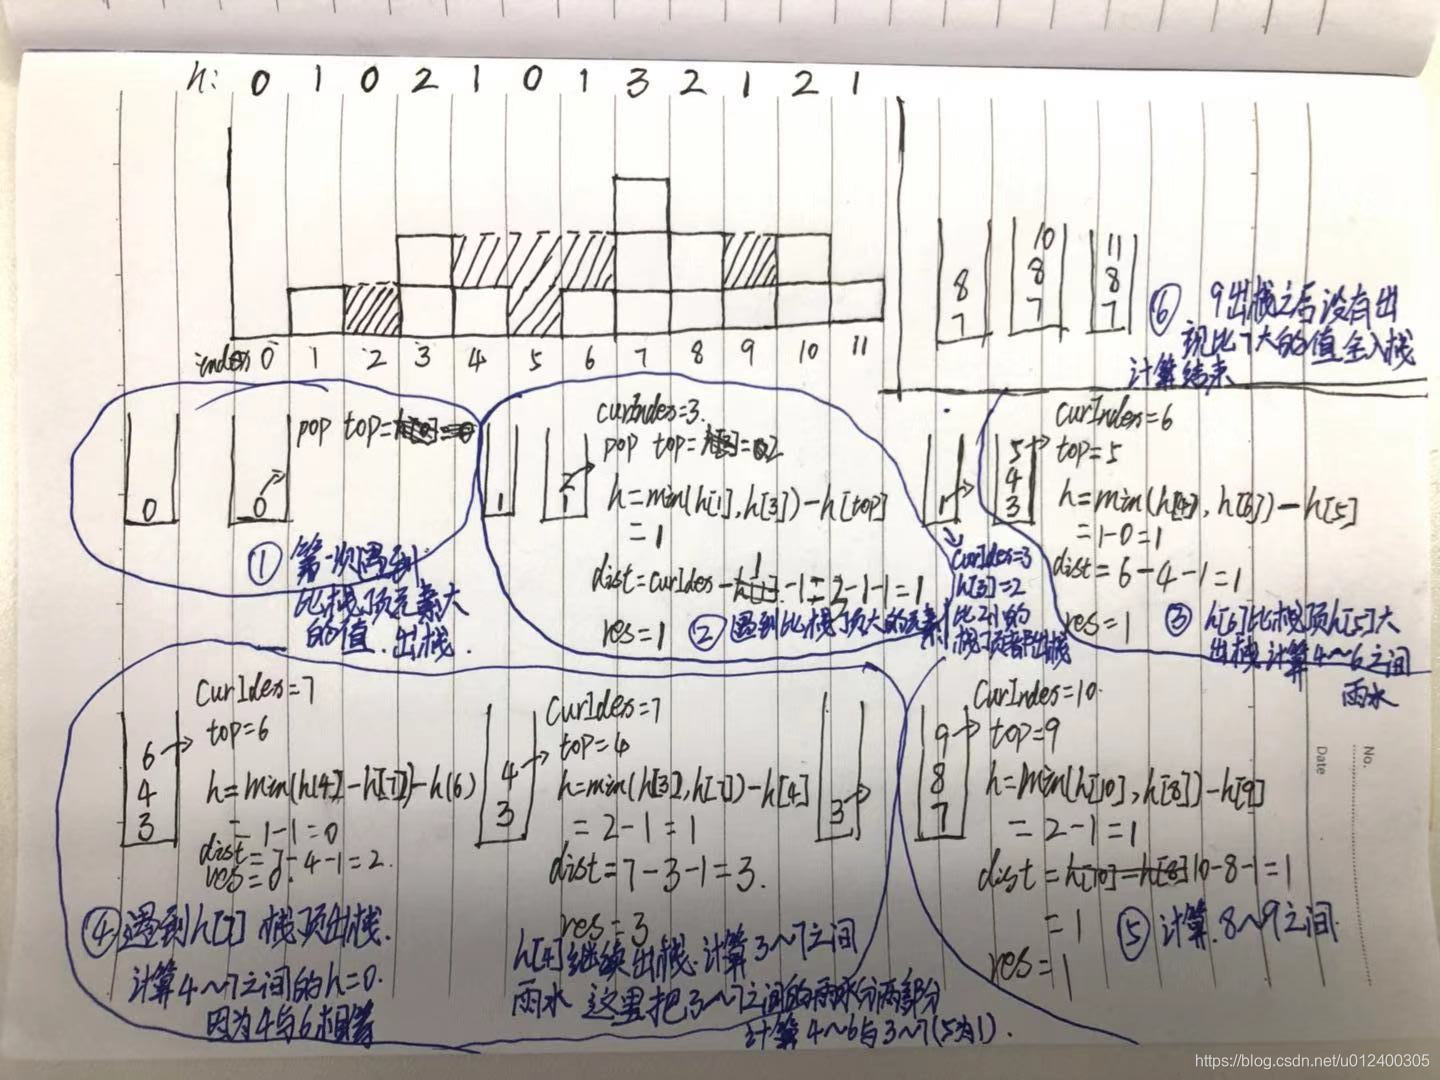 h: 0 1 0 2 1 0 1 3 2 1 2 1
index 0 1 2 3 4 5 6 7 8 9 10 11
8
7
10
8
7
11
8
7
⑥ 9出栈之后没有出
现比7大的值全入栈
计算结束
0
0
pop top=
① 第一次遇到
比栈顶元素大
的值.出栈.
1
2
1
curIndex=3.
pop top= 2
h=min(h[1],h[3])-h[top]
=1
dist=curIdex-1-1=2-1-1=1
res=1
② 遇到比栈顶大的元素
1
curIdex=3
h[3]=2
比2小的
栈顶都出栈
5
4
3
curIndex=6
top=5
h=min(h[4],h[6])-h[5]
=1-0=1
dist=6-4-1=1
res=1
③ h[6]比栈顶h[5]大
出栈.计算4~6之间
雨水
6
4
3
curIdex=7
top=6
h=min(h[4]-h[7])-h(6)
=1-1=0
dist=7-4-1=2.
res=0.
④ 遇到h[7] 栈顶出栈.
计算4~7之间的h=0.
因为4与6相等
4
3
curIdex=7
top=4
h=min(h[3],h[7])-h[4]
=2-1=1
dist=7-3-1=3.
res=3
h[4]继续出栈.计算3~7之间
雨水 这里把3~7之间的雨水分两部分
计算4~6与3~7(5为1).
3
9
8
7
curIndex=10.
top=9
h=min(h[10],h[8])-h[9]
=2-1=1
dist=h[10]-h[8]10-8-1=1
=1
res=1
⑤ 计算.8~9之间.
No.
Date
https://blog.csdn.net/u012400305